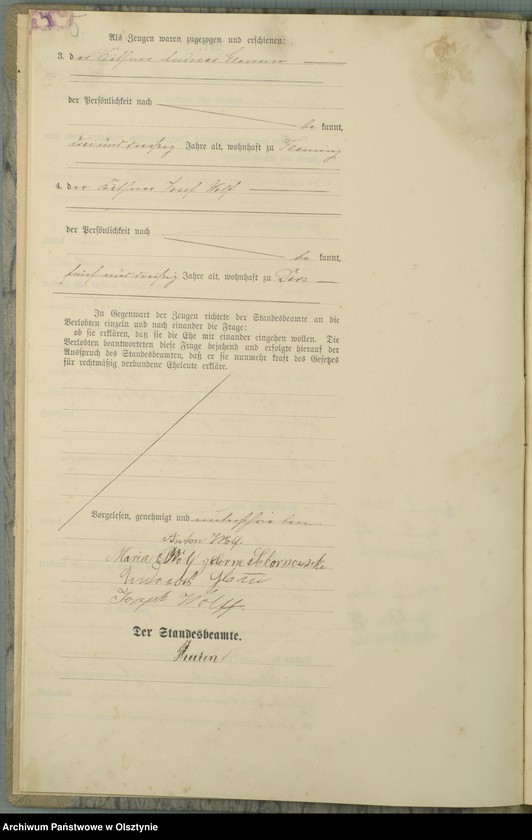 Als Zeugen waren zugezogen und erschienen:
3. der Käthner Andreas
der Persönlichkeit nach
be kannt,
drei und dreißig Jahre alt, wohnhaft zu Fleming
4. der Käthner Josef Wolf
der Persönlichkeit nach
be kannt,
fünf und dreißig Jahre alt, wohnhaft zu Derz
In Gegenwart der Zeugen richtete der Standesbeamte an die
Verlobten einzeln und nach einander die Frage:
ob sie erklären, daß sie die Ehe mit einander eingehen wollen. Die
Verlobten beantworteten diese Frage bejahend und erfolgte hierauf der
Ausspruch des Standesbeamten, daß er sie nunmehr kraft des Gesetzes
für rechtmäßig verbundene Eheleute erkläre.
Vorgelesen, genehmigt und unterschrieben.
Anton Wolf.
Maria Wolf geborne
Joseph Wolff
Der Standesbeamte.
Archiwum Państwowe w Olsztynie